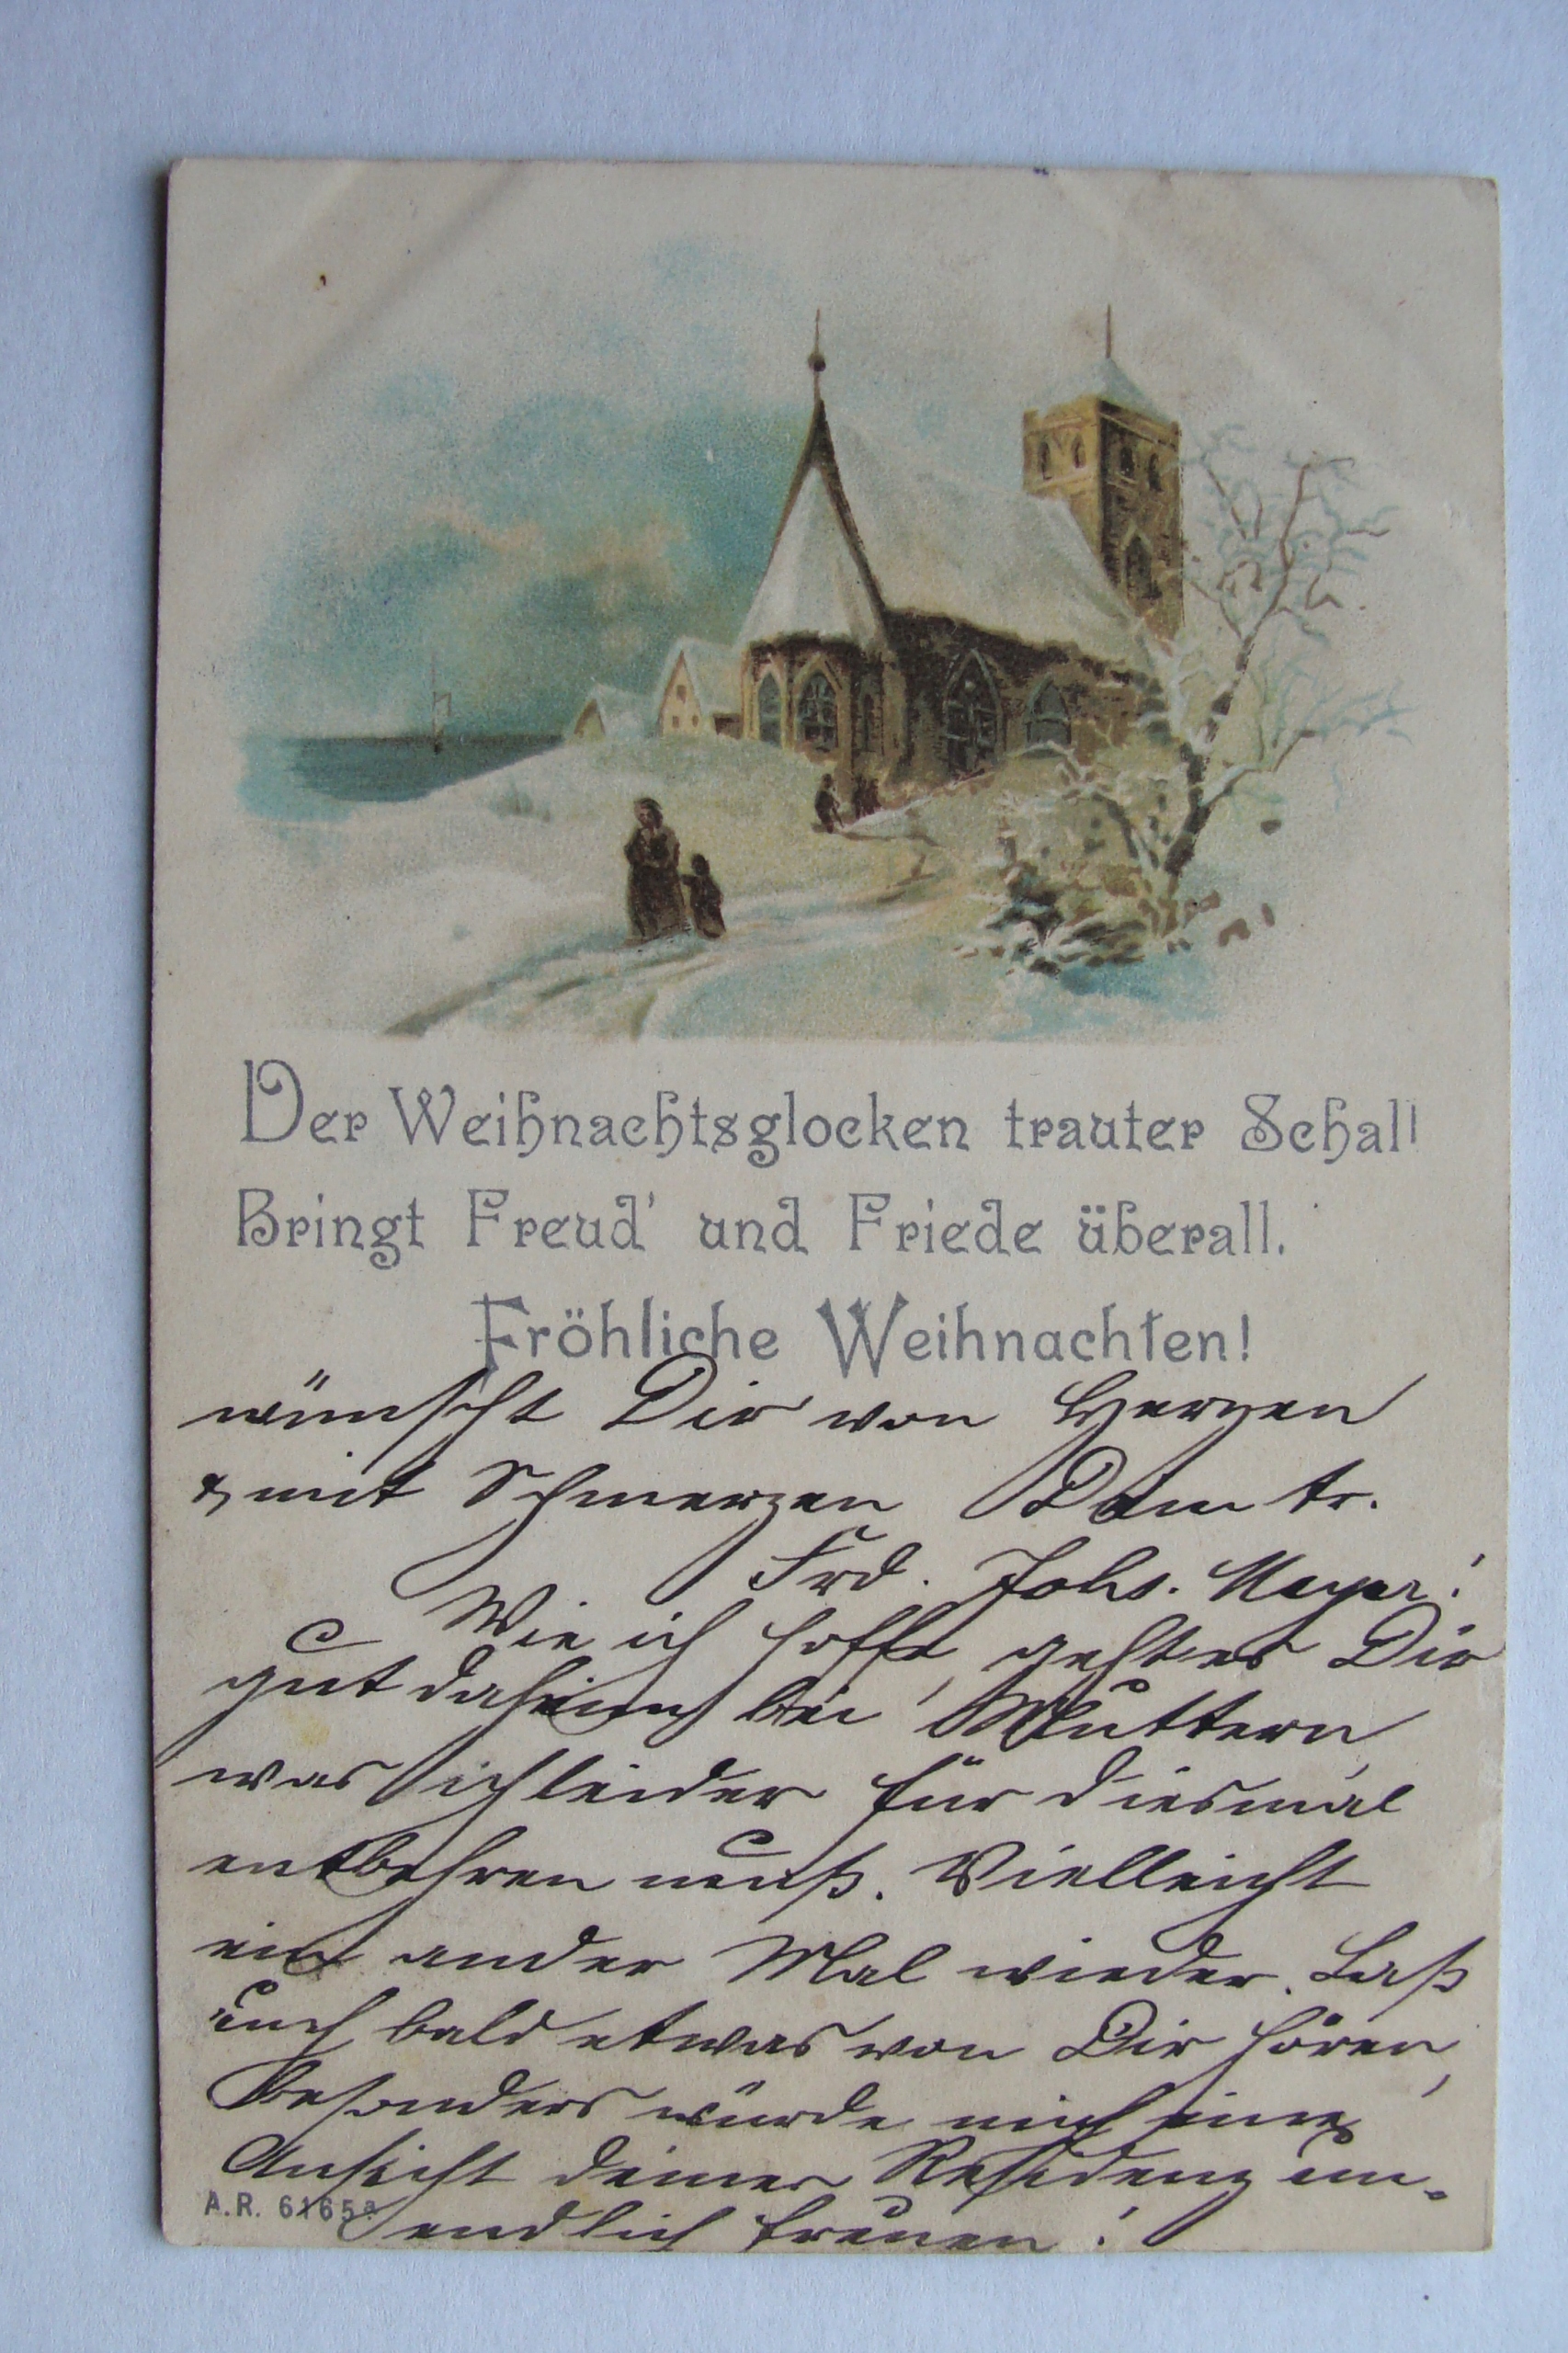 Der Weihnachtsglocken trauter Schall
Bringt Freud' und Friede überall.
Fröhliche Weihnachten!
wünscht Dir von Herzen
& mit Schmerzen Dein tr.
Frd. Johs. Meyer!
Wie ich hoffe, geht es Dir
gut daheim bei Muttern,
was ich leider für diesmal
entbehren muß. Vielleicht
ein ander Mal wieder. Laß
auch bald etwas von Dir hören,
besonders würde mich eine
Ansicht deiner Residenz un-
endlich freuen!
A.R. 6165a